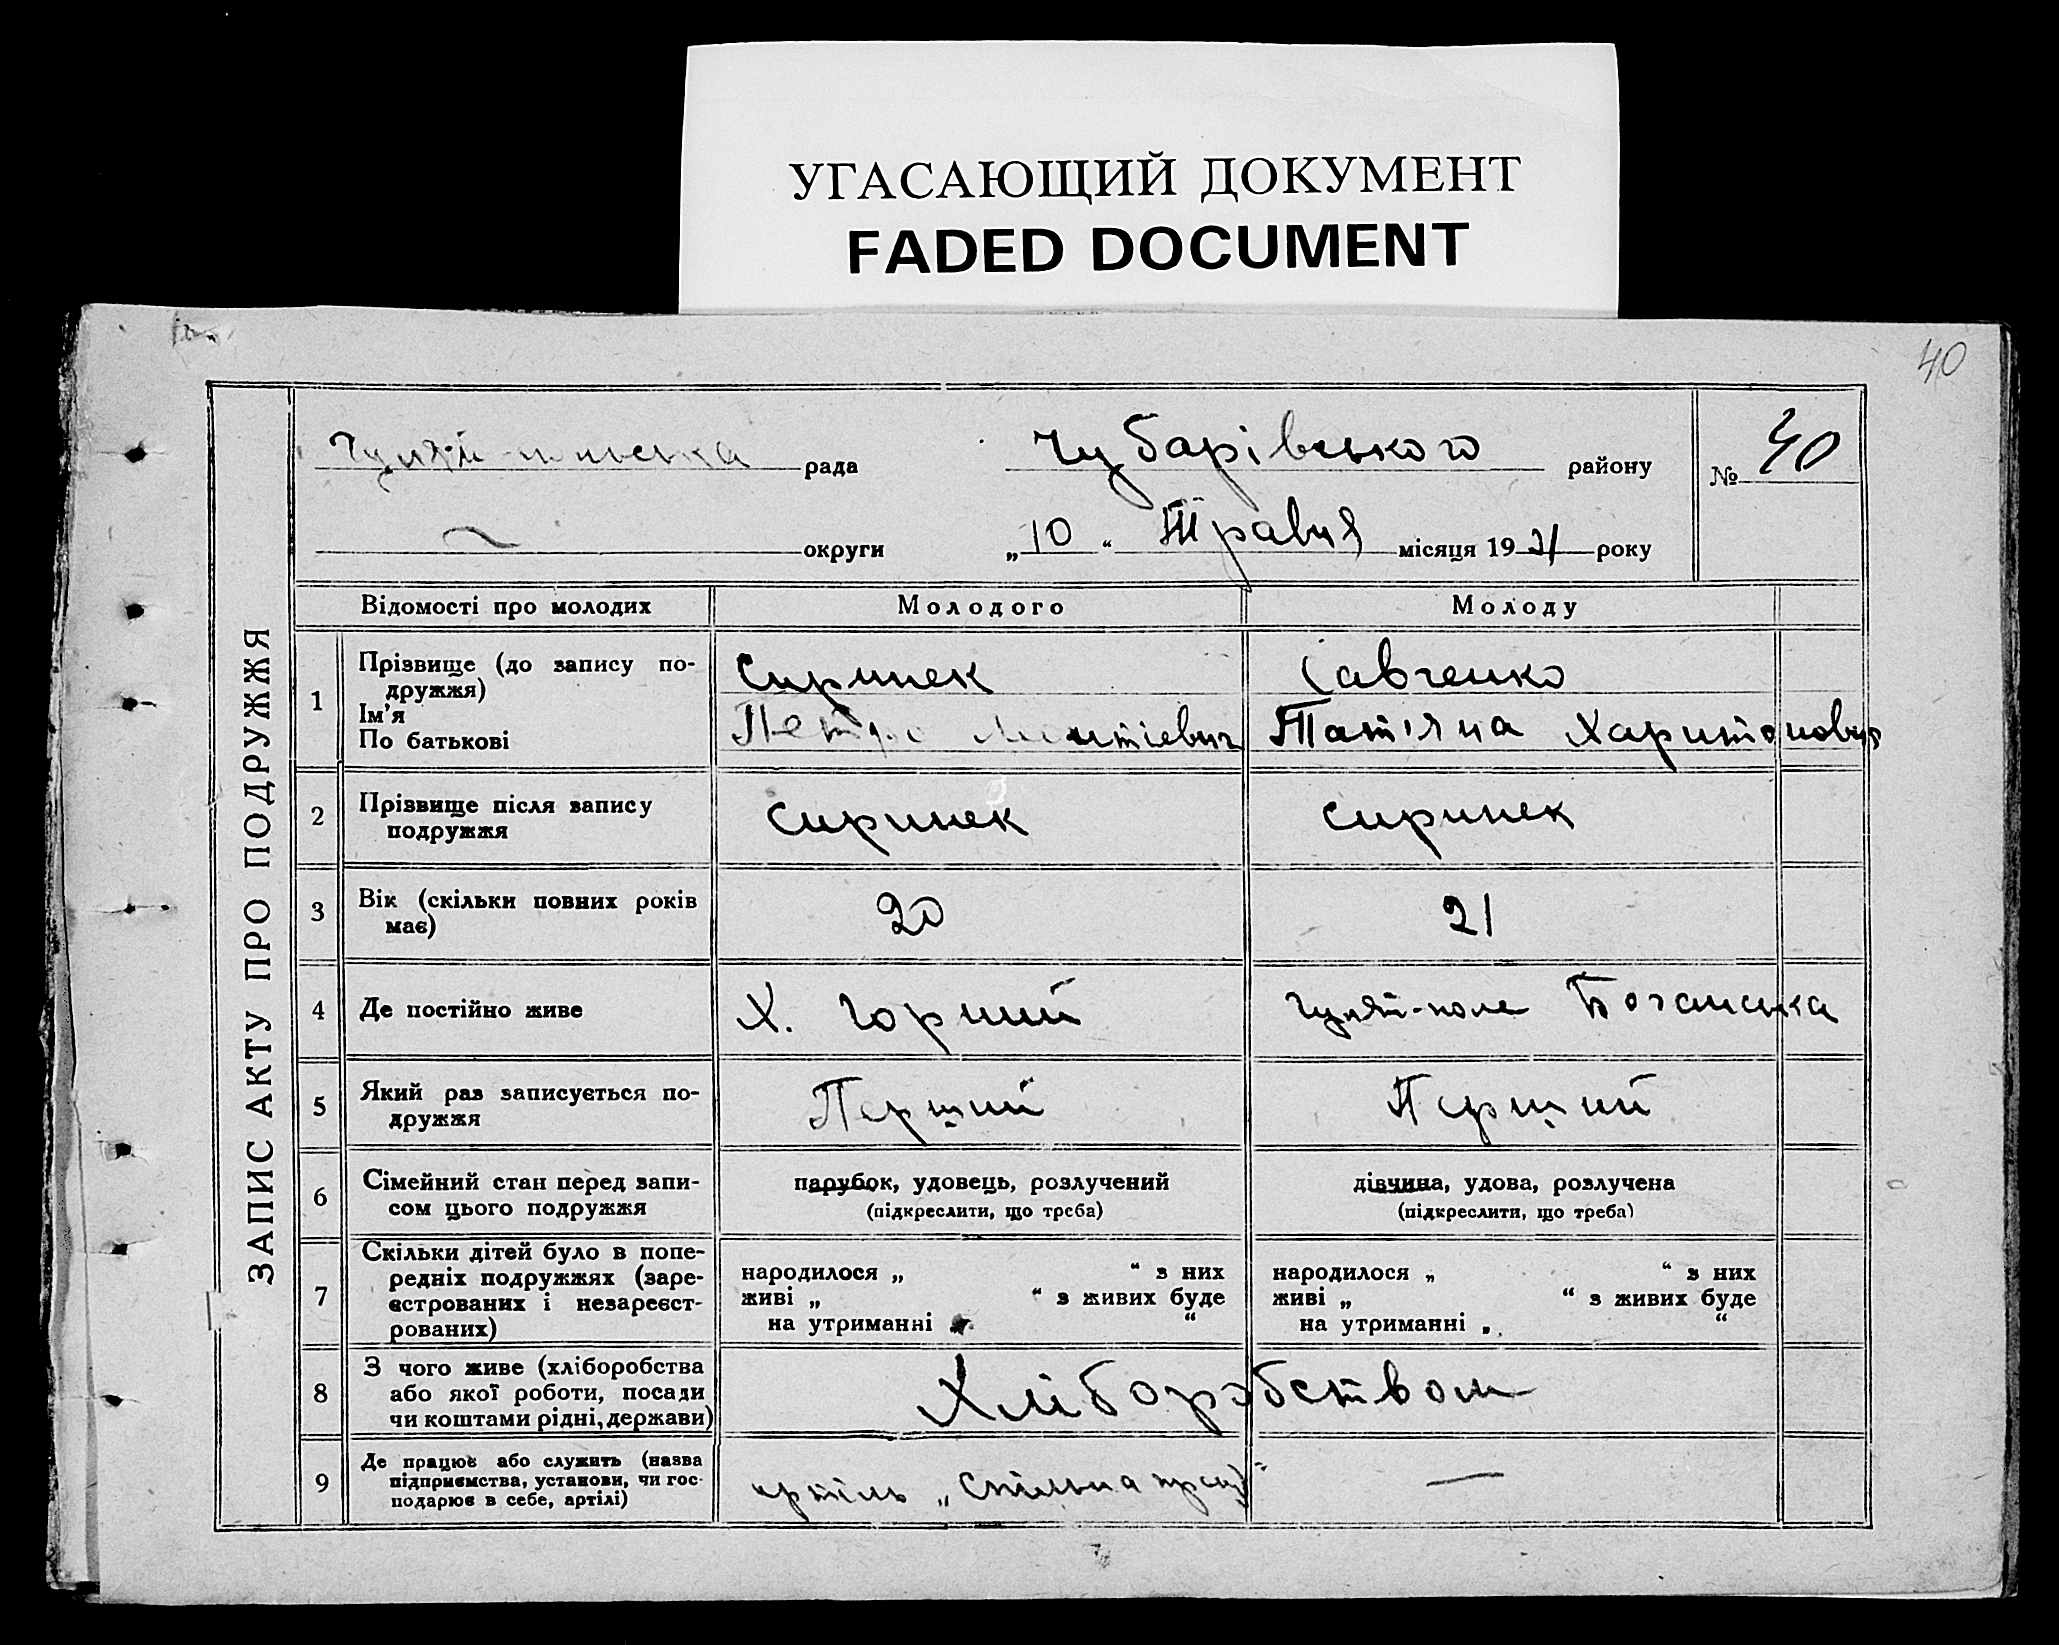 УГАСАЮЩИЙ ДОКУМЕНТ
FADED DOCUMENT
40
ЗАПИС АКТУ ПРО ПОДРУЖЖЯ
рада Чубарівського району № 40
округи „10“ Травня місяця 1931 року
Відомості про молодих Молодого Молоду
1 Прізвище (до запису по-
дружжя) Сиринек Савченко
Ім’я
По батькові Петро Татіяна Харитоновна
2 Прізвище після запису
подружжя Сиринек Сиринек
3 Вік (скільки повних років
має) 20 21
4 Де постійно живе Х. Горький Гуляй-поле
5 Який раз записується по-
дружжя Перший Перший
6 Сімейний стан перед запи-
сом цього подружжя
парубок, удовець, розлучений дівчина, удова, розлучена
(підкреслити, що треба) (підкреслити, що треба)
7 Скільки дітей було в попе-
редніх подружжях (заре-
єстрованих і незареєст-
рованих)
народилося „ “ з них народилося „ “ з них
живі „ “ з живих буде живі „ “ з живих буде
на утриманні „ “ на утриманні „ “
8 З чого живе (хліборобства
або якої роботи, посади
чи коштами рідні, держави)
Хліборобством
9 Де працює або служить (назва
підприємства, установи, чи гос-
подарює в себе, артілі)
артіль „Спільна праця“ —